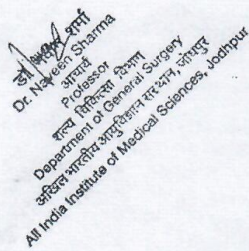 डॉ शर्मा
Dr. Naveen Sharma
आचार्य
Professor
शल्य चिकित्सा विभाग
Department of General Surgery
अखिल भारतीय आयुर्विज्ञान संस्थान, जोधपुर
All India Institute of Medical Sciences, Jodhpur